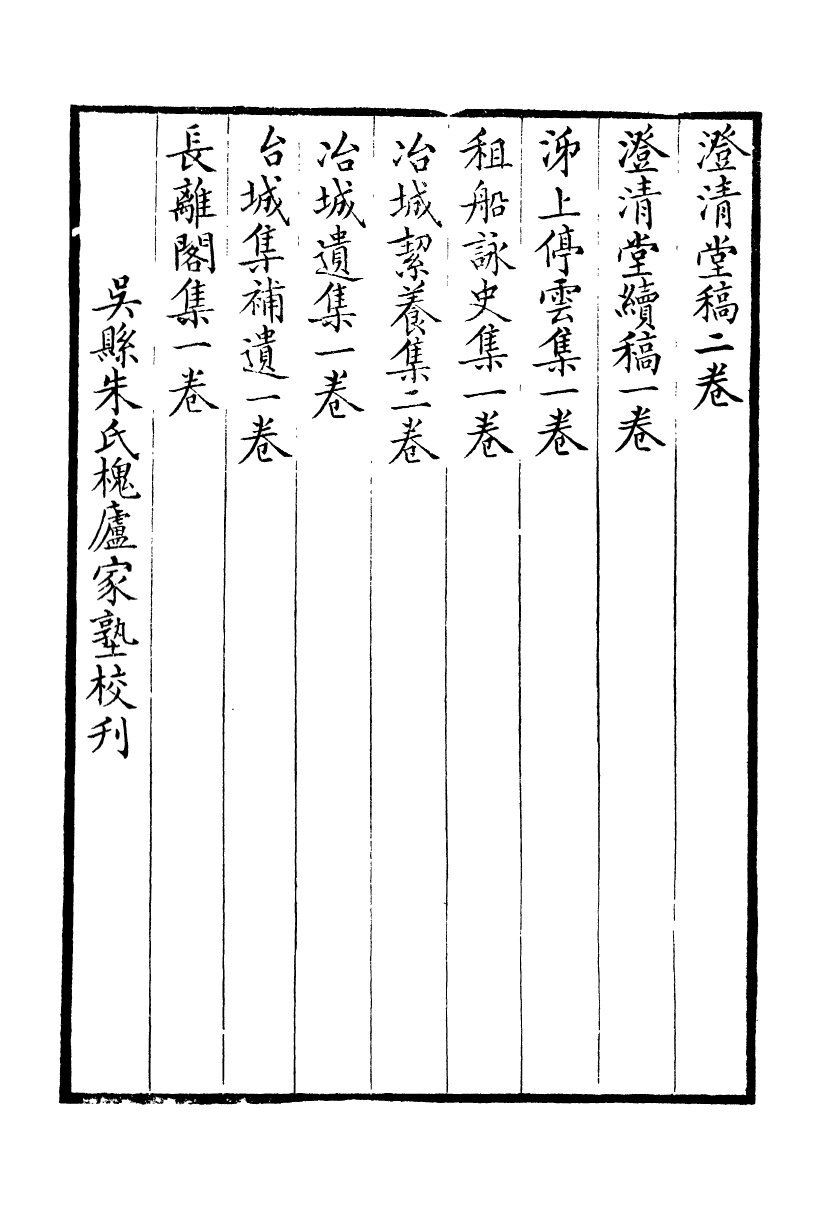 澄清堂稿二卷
澄清堂續稿一卷
泲上停雲集一卷
租船詠史集一卷
冶城絜養集二卷
冶城遺集一卷
台城集補遺一卷
長離閣集一卷
吳縣朱氏槐廬家塾校刊